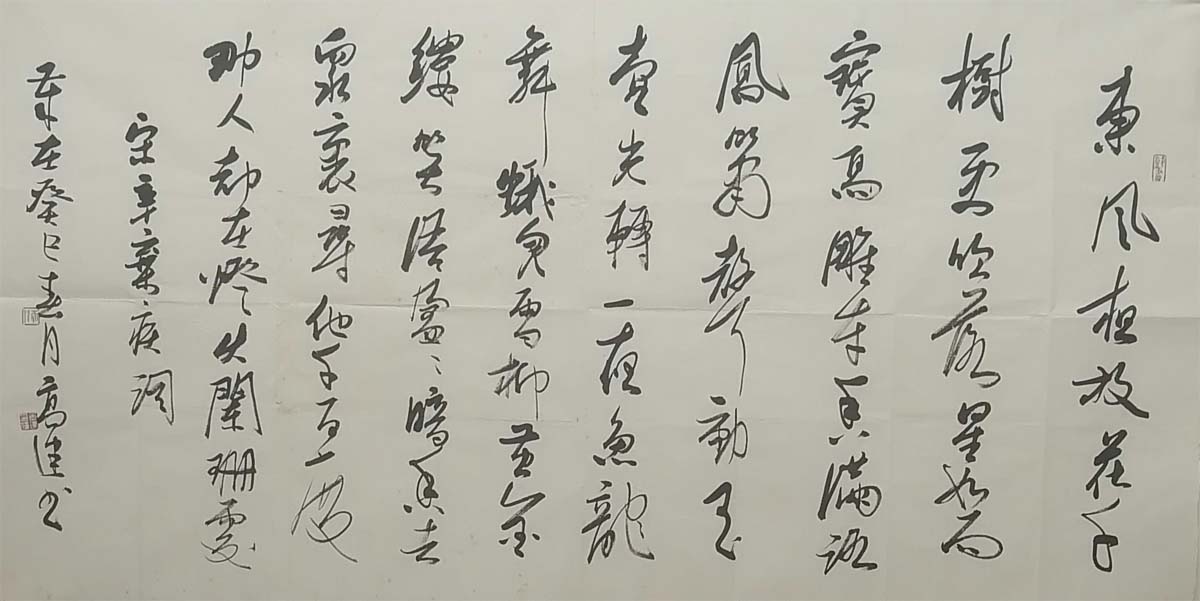 東風放花千
樹更吹落星如雨
寶馬雕車香滿路
鳳簫動玉
壺光轉一夜魚龍
舞蛾兒雪柳黃金
縷笑語盈〻暗香去
眾裏尋他千百度
那人却在燈火闌珊處
宋辛棄疾詞
歲在癸巳春月高健書